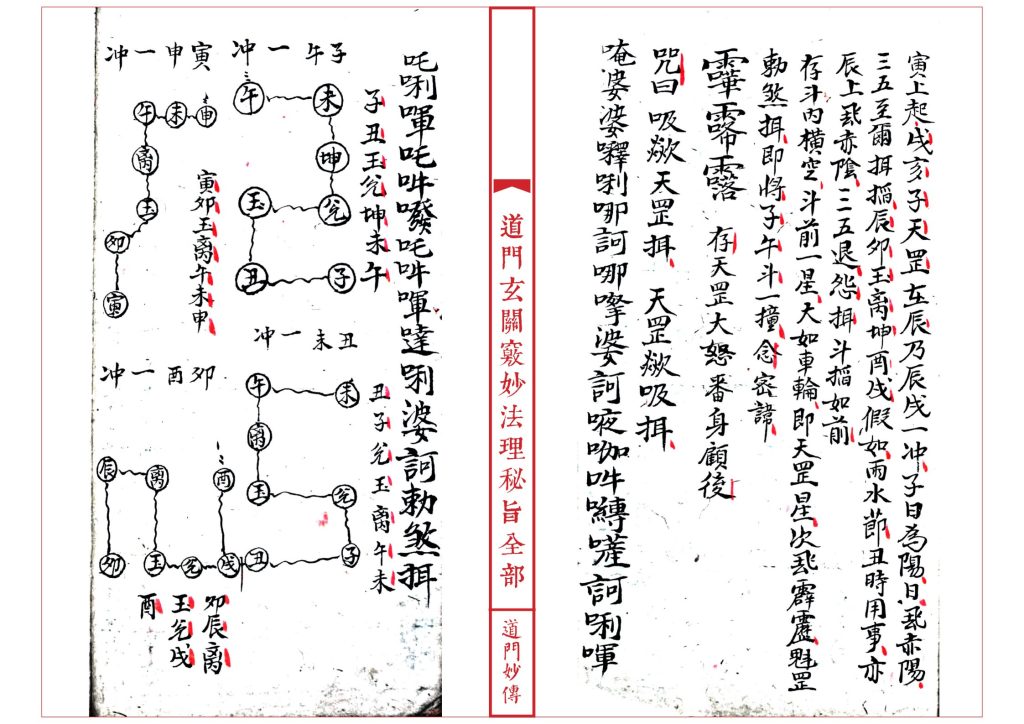 寅上起戌亥子天罡在辰乃辰戌一冲子日為陽日飛赤陽
三五至爾揖搯辰夘玉离坤酉戌假如雨水節丑時用事亦
辰上飛赤陰二三五退怨揖斗搯如前
存斗內橫空斗前一星大如車輪即天罡星次飛霹靂魁罡
勅煞揖即將子午斗一撞念密諱
存天罡大怒番身顧後
咒曰吸歘天罡揖天罡歘吸揖
唵婆婆囉唎哪訶哪嚤婆訶㖡咖吽嚩嗟訶唎㗲
道門玄關竅妙法理秘旨全部
道門妙傳
吒唎㗲吒吽㘔吒吽㗲噠唎婆訶勅煞揖
子午一冲
子丑玉兌坤未午
午
未
坤
兌
玉
丑
子
寅申一冲
寅夘玉离午未申
午
未
申
离
玉
夘
寅
丑未一冲
丑子兌玉离午未
午
未
离
玉
兌
丑
子
夘酉一冲
辰
离
酉
夘
玉
兌
戌
夘辰离
玉兌戌
酉